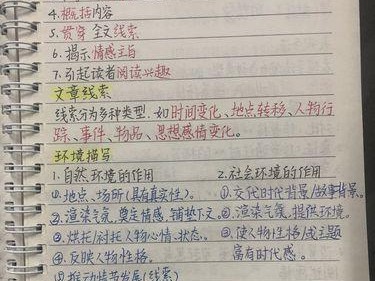 4.概括内容
5.贯穿全文线索
6.揭示情感主旨
7.引起读者阅读兴趣
文章线索
线索分为多种类型.如时间变化、地点转移、人物行
踪、事件、物品、思想感情变化。
环境描写
1.自然环境的作用 2.社会环境的作用
①.地点、场所(具有真实性)。 ①.交代时代背景/故事背景。
②.渲染气氛.奠定情感.铺垫下文。②.渲染气氛.提供环境。
③.烘托/衬托人物心情.状态。 ③.使人物性格/或主题
④.反映人物性格。 富有时代感。
⑤.推动情节发展(线索)